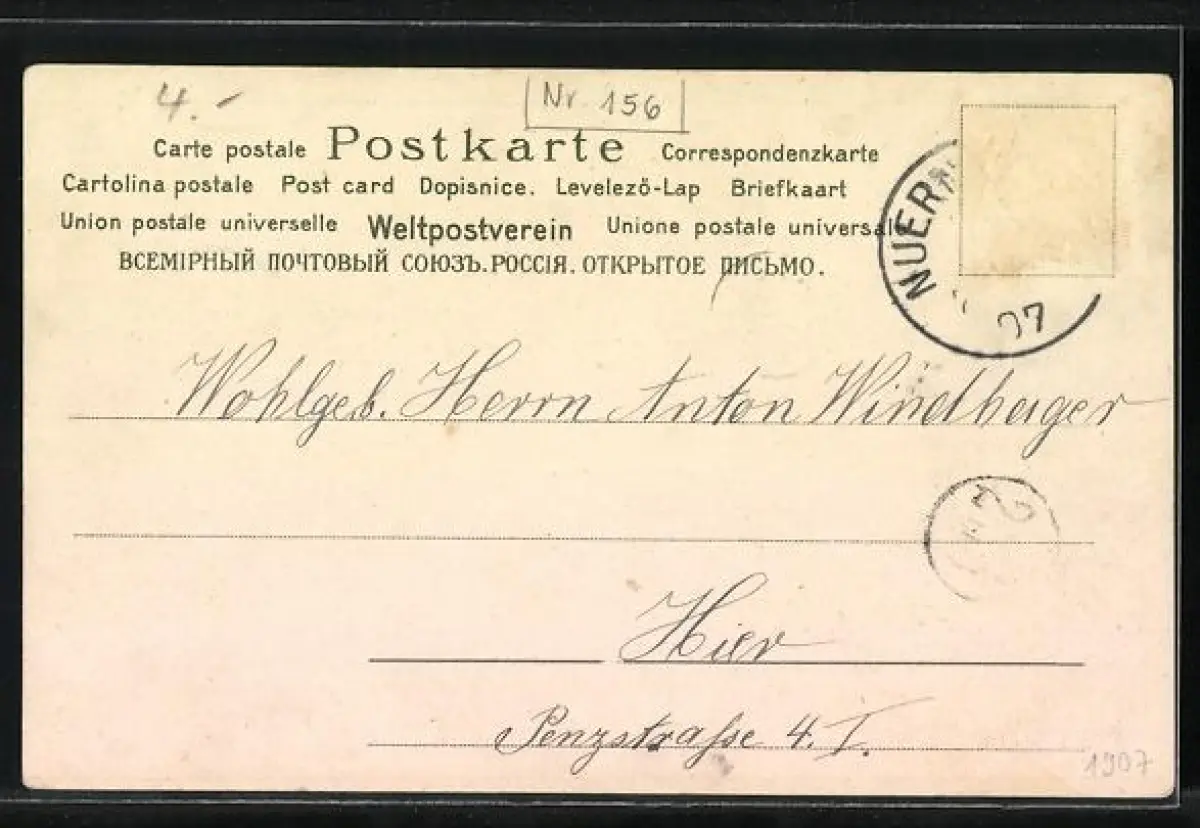 4.-
Nr. 156
Carte postale Postkarte Correspondenzkarte
Cartolina postale Post card Dopisnice. Levelező-Lap Briefkaart
Union postale universelle Weltpostverein Unione postale universale
ВСЕМІРНЫЙ ПОЧТОВЫЙ СОЮЗЪ. РОССІЯ. ОТКРЫТОЕ ПИСЬМО.
NUER
07
Wohlgeb. Herrn Anton Windherger
2
Hier
Penzstraße 4. I.
1907